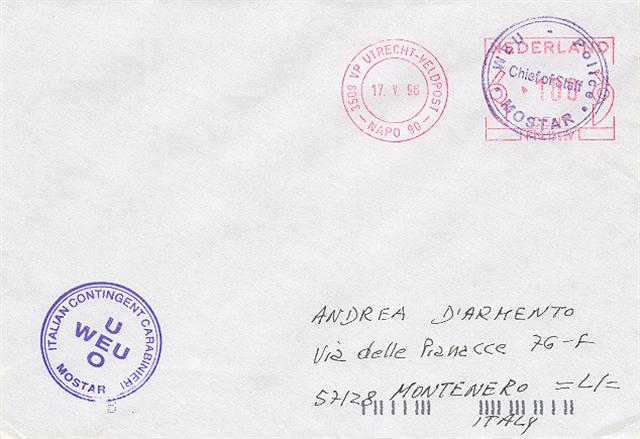 3509 VP UTRECHT-VELDPOST
17. V. 96
NAPO 90
NEDERLAND
100
WEU - Police
Chief of Staff
MOSTAR
ITALIAN CONTINGENT CARABINIERI
U
WEU
O
MOSTAR
ANDREA D'ARMENTO
Via delle Pianacce 76-F
57128 MONTENERO =LI=
ITALY